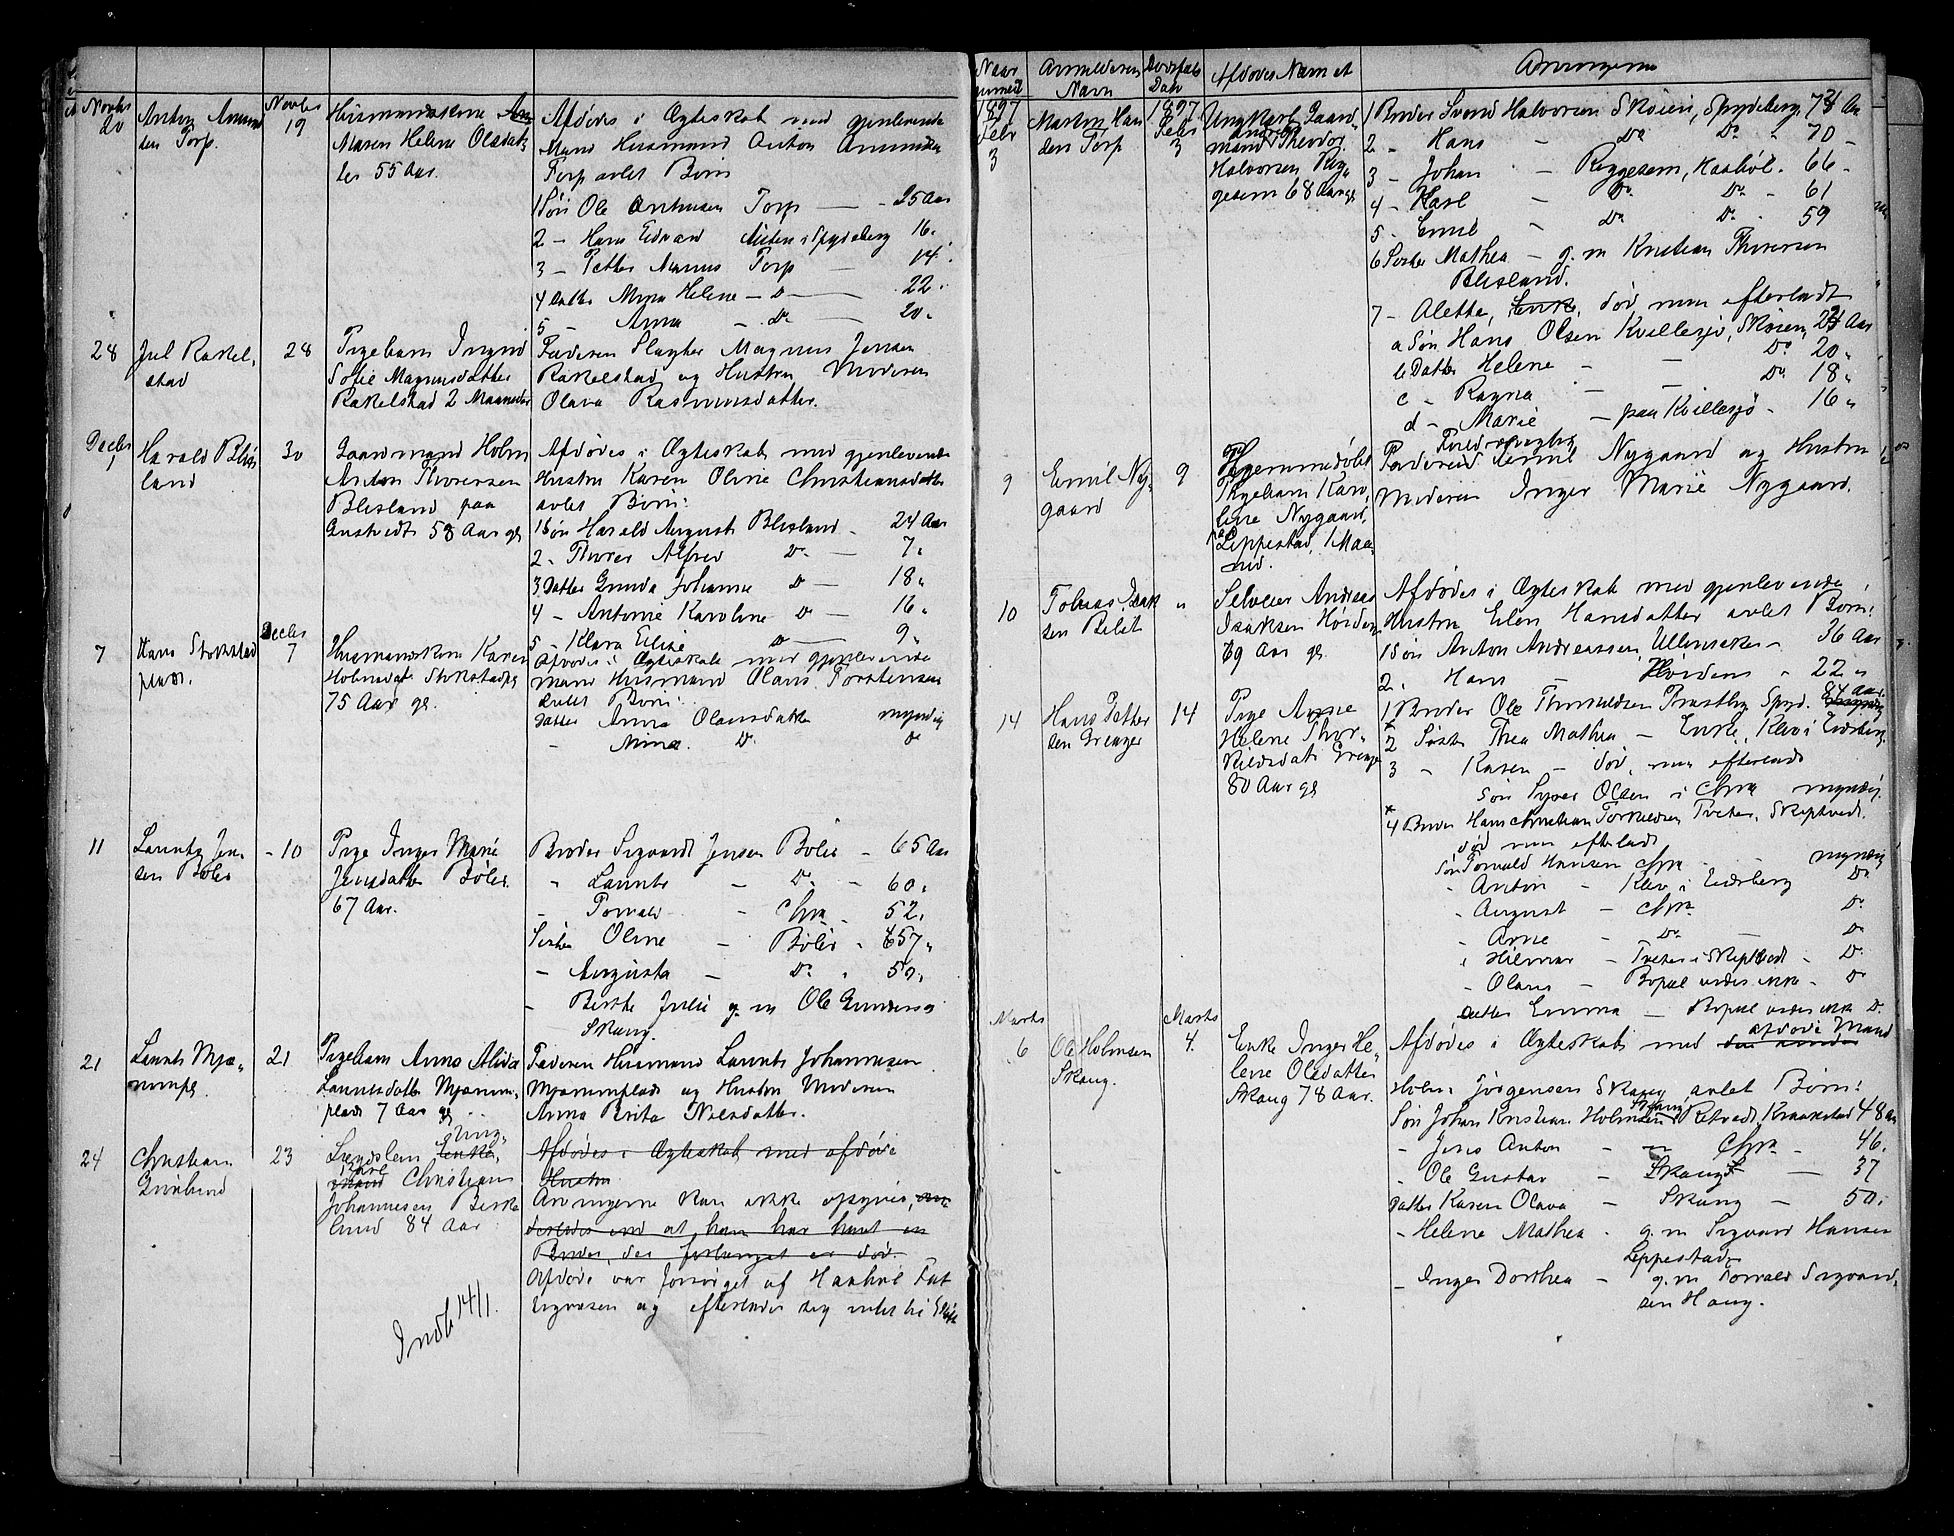 Novbr
20
Anton Amund
sen Torp.
Novbr
19
Husmandskone
Maren Helene Olsdat-
ter 55 Aar.
Afdødes i Ægteskab med gjenlevende
Mand Husmand Anton Amundsen
Torp avlet Børn
1 Søn Ole Antonsen Torp — 25 Aar
2 — Hans Edvard i Spydeberg 16.
3 — Petter Magnus Torp — 14.
4 Datter Mina Helene — Do — 22.
5 — Anna — Do — 20.
28
Jul Rakel-
stad
28
Pigebarn Ingrid
Sofie Magnusdatter
Rakelstad 2 Maaneder
Faderen Slagter Magnus Jensen
Rakelstad og Hustru Moderen
Olava Rasmusdatter.
Decbr
1
Harald Blis
land
30
Gaardmand Holm
Anton Thoresen
Blisland paa
Gustvedt 58 Aar gl
Afdødes i Ægteskab med gjenlevende
Hustru Karen Oline Christiansdatter
avlet Børn:
1 Søn Harald August Blisland — 24 Aar
2 — Thorer Alfred Do — 7.
3 Datter Gunda Johanne Do — 18.
4 — Antonie Karoline Do — 16.
5 — Klara Elise Do — 9.
7
Hans Stokstad
plads.
Decbr
7
Husmandskone Karen
Holmsdat Stokstadpl
75 Aar gl.
Afdødes i Ægteskab med gjenlevende
Mand Husmand Olaus Torstensen
avlet Børn:
Datter Anna Olausdatter myndig
— Mina Do Do
11
Lauritz Jen-
sen Bøler
- 10
Pige Inger Marie
Jensdatter Bøler
67 Aar.
Broder Sigvardt Jensen Bøler — 65 Aar
" Laurits — Do — 60.
— Torvald — Chra — 52.
Søster Oline — Bøler — 57.
— Augusta — Do — 50.
— Berthe Julie g. m Ole Gundersen
Skaug.
21
Laurits Mjæ-
rumpl.
21
Pigebarn Anna Alida
Lauritsdatter Mjærum-
plads 7 Aar gl
Faderen Husmand Laurits Johannesen
Mjærumplads og Hustru Moderen
Anna Brita Nilsdatter.
24
Christian
Grinlund
23
Lægdslem Enke-
Ung-
mand Karl Christian
Johannesen Birke
lund 84 Aar.
Afdødes i Ægteskab med afdøde
Hustru
Arvingerne kan ikke opgives,
derledes end at han har havt en
Broder, der forlængst er død.
Afdøde var forsørget af Haabøl Fat
tigvæsen og efterlader sig intet til Skifte
Indb 14/1.
Naar
anmeldt
Anmelderens
Navn
Dødsfalds
Dato
Afdødes Navn et
Arvingerne
1897
Febr
3
Martin Han
sen Torp
1897
Febr
3
Ungkarl Gaard-
mand Andreas Theodor
Halvorsen Reg-
gesem 68 Aar gl
1 Broder Svend Halvorsen Skøien, Spydeberg, 73 Aar
2 — Hans — Do Do — 70 —
3 — Johan — Reggesem, Haabøl. 66 —
4 — Karl — Do Do — 61
5 — Emil — Do Do — 59
6 Søster Mathea — g. m Kristian Thoresen
Blisland.
7 — Alette, Enke, død men efterladt
a Søn Hans Olsen Kvillesjø, Skøien, 23 Aar
b Datter Helene — Do 20.
c — Ragna — Do 18.
d — Marie — paa Kvillesjø — 16.
9
Emil Ny-
gaard
9
Hjemmedøbt
Pigebarn Karo-
line Nygaard,
Leppestad, 1 Maa-
ned.
Faderen Emil Nygaard og Hustru
Moderen Inger Marie Nygaard.
10
Tobias Isak
sen Bilit
"
Selveier Andreas
Isaksen Høiden
69 Aar gl.
Afdødes i Ægteskab med gjenlevende
Hustru Elen Hansdatter avlet Børn:
1 Søn Anton Andreassen, Ullensaker — 36 Aar
2. Hans — Høiden — 22.
14
Hans Petter
sen Grenger
14
Pige Anne
Helene Thor-
kildsdat Grenger
80 Aar gl
1 Broder Ole Thorkildsen Præstby Spyd. 84 Aar.
2 Søster Thea Mathea — Enke, Klev i Eidsberg.
3 — Karen — død, men efterladt
Søn Syver Olsen i Chra myndig.
4 Broder Hans Christian Torkildsen Tveter, Skiptvedt.
død men efterladt
Søn Torvald Hansen Chra — myndig
- Anton — Klev i Eidsberg Do
- August — Chra Do
- Arne — Do — Do
- Hilmar — Tveter i Skiptvedt — Do
- Olaus — Bopæl vides ikke — Do
Datter Emma — Bopæl vides ikke Do
Marts
6
Ole Holmsen
Skaug.
Marts
4.
Enke Inger He-
lene Olsdatter
Skaug 78 Aar.
Afdødes i Ægteskab med afdøde Mand
Holm Jørgensen Skaug avlet Børn:
Søn Johan Kristian Holmsen Skaug, Retvedt, Kraakstad 48 Aar
- Jens Anton — — Chra — 46.
- Ole Gustav — Skaug — 37
Datter Karen Olava — Skaug — 50.
- Helene Mathea — g. m Sigvard Hansen
Leppestad
- Inger Dorthea — g. m Torvald Sigvard-
sen Haug.